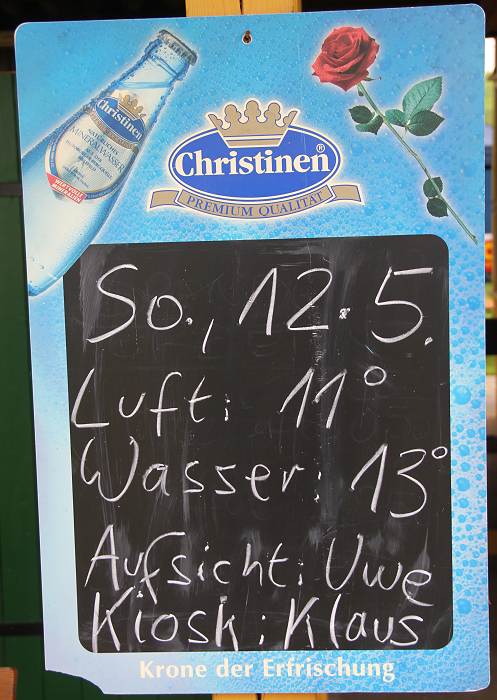 Christinen
NATÜRLICHES
MINERALWASSER
Christinen®
PREMIUM QUALITÄT
So., 12.5.
Luft: 11°
Wasser: 13°
Aufsicht: Uwe
Kiosk: Klaus
Krone der Erfrischung